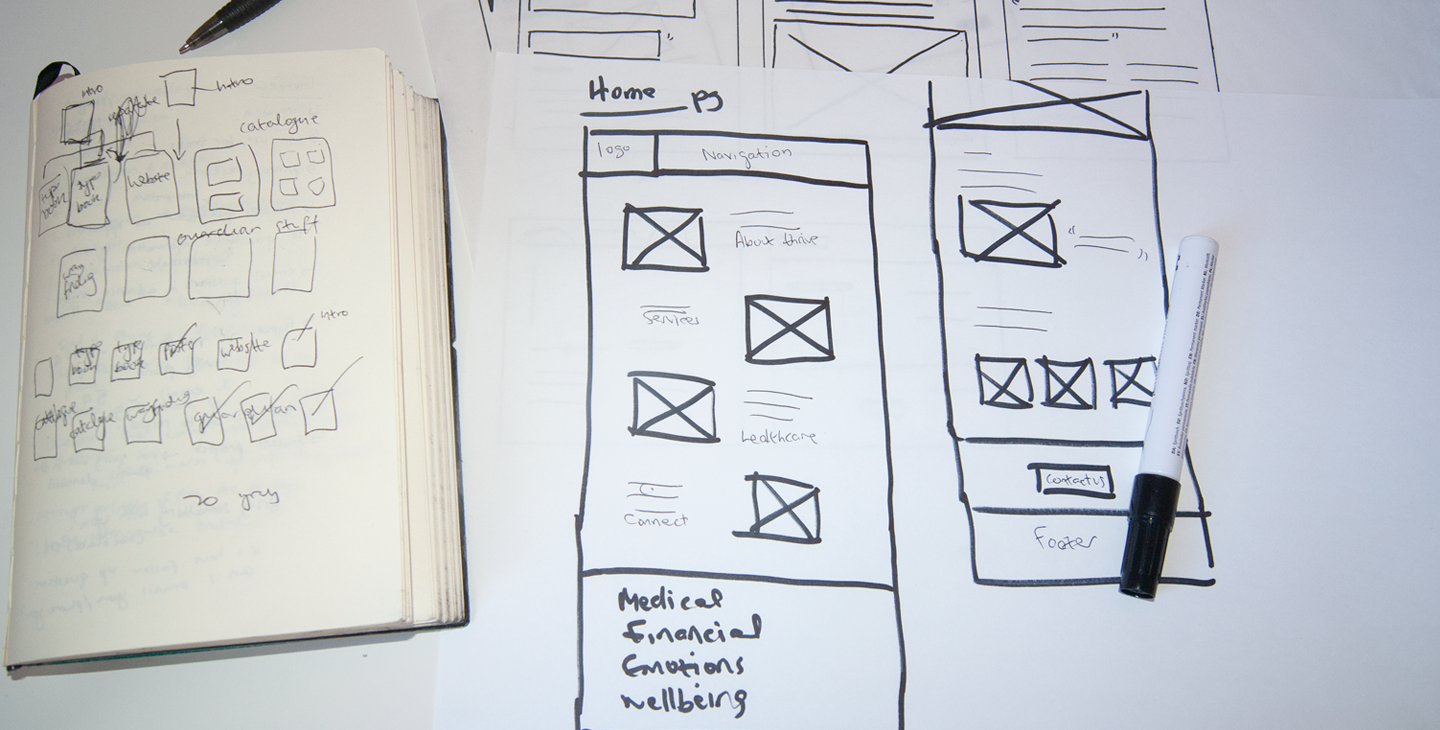 intro
intro
catalogue
type book
type book
website
guardian stuff
way finding
type book
type book
website
intro
catalogue
catalogue
wayfinding
Home pg
logo
Navigation
About thrive
Services
Healthcare
Connect
Medical
Financial
Emotions
Wellbeing
“
”
Contact us
Footer